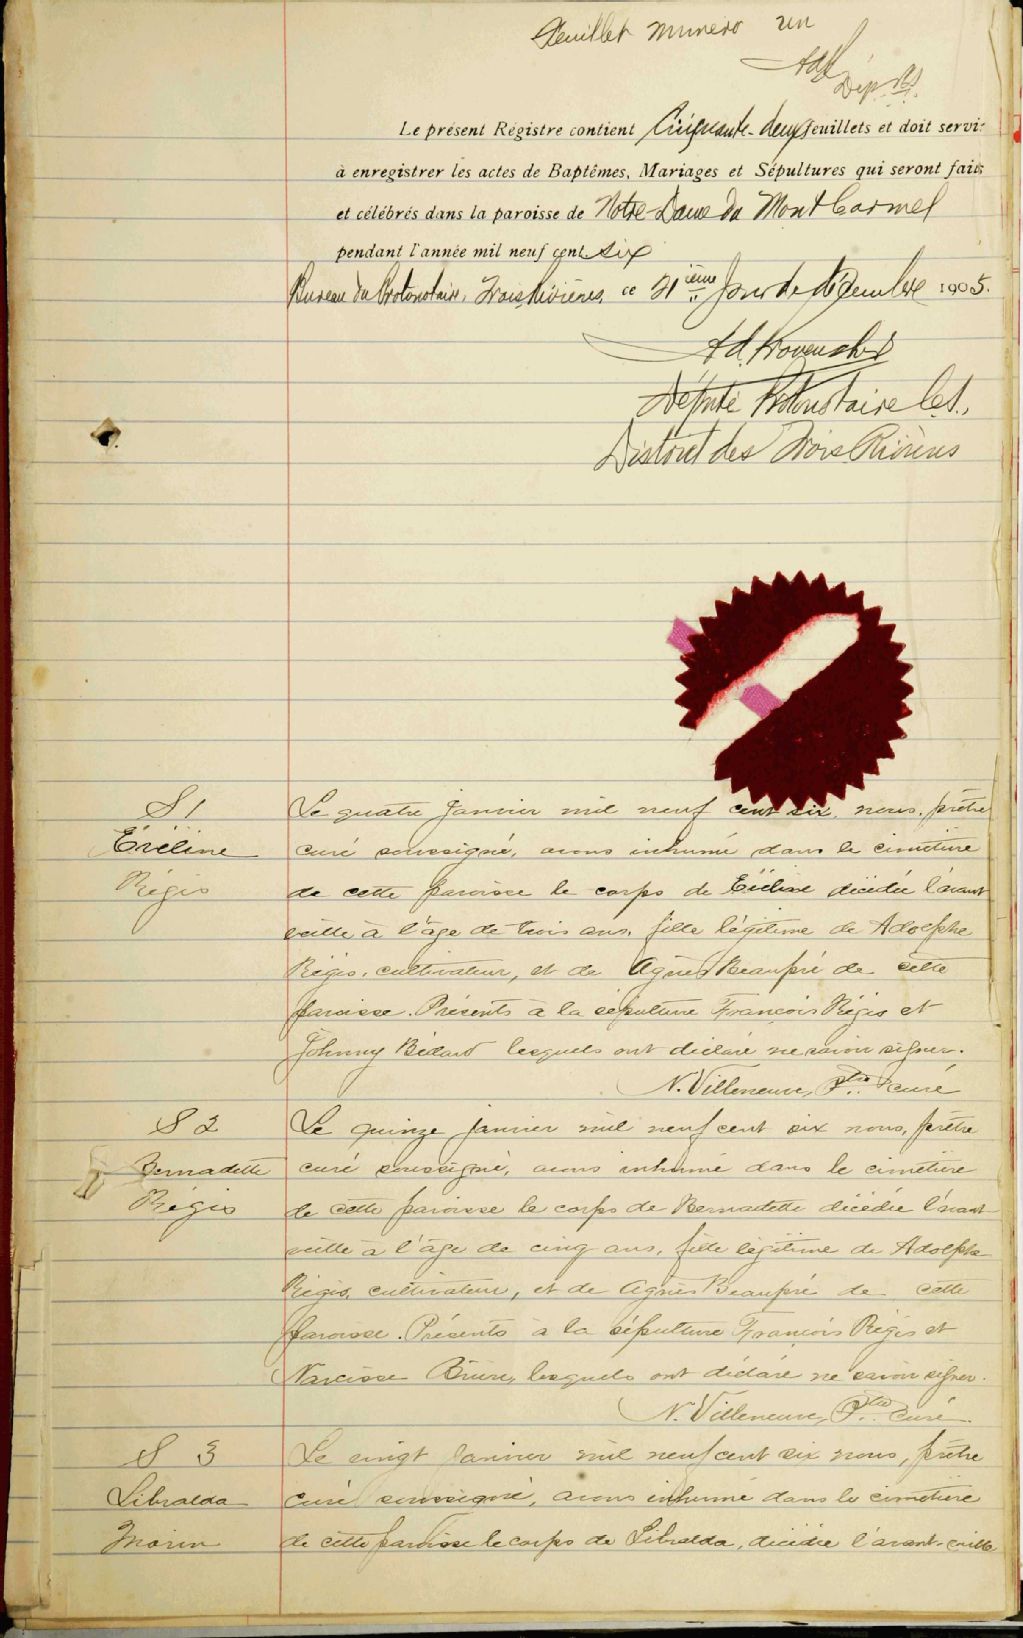 Feuillet numéro un
Ad P
Dép. P.
Le présent Régistre contient Cinquante-deux feuillets et doit servir
à enregistrer les actes de Baptêmes, Mariages et Sépultures qui seront faits
et célébrés dans la paroisse de Notre-Dame du Mont Carmel
pendant l'année mil neuf cent six
Bureau du Protonotaire, Trois Rivières, ce 21 ième jour de décembre 1905.
Ad. Provencher
Député Protonotaire C.S.,
District des Trois Rivières
S 1
Évéline
Régis
Le quatre janvier mil neuf cent six, nous, prêtre
curé soussigné, avons inhumé dans le cimetière
de cette paroisse le corps de Évéline décédée l'avant
veille à l'âge de trois ans, fille légitime de Adolphe
Régis, cultivateur, et de Agnès Beaupré de cette
paroisse. Présents à la sépulture François Régis et
Johnny Bédard lesquels ont déclaré ne savoir signer.
N. Villeneuve, Ptre curé
S 2
Bernadette
Régis
Le quinze janvier mil neuf cent six nous, prêtre
curé soussigné, avons inhumé dans le cimetière
de cette paroisse le corps de Bernadette décédée l'avant
veille à l'âge de cinq ans, fille légitime de Adolphe
Régis, cultivateur, et de Agnès Beaupré de cette
paroisse. Présents à la sépulture François Régis et
Narcisse lesquels ont déclaré ne savoir signer.
N. Villeneuve, Ptre curé
S 3
Libralda
Morin
Le vingt janvier mil neuf cent six nous, prêtre
curé soussigné, avons inhumé dans le cimetière
de cette paroisse le corps de Libralda, décédée l'avant-veille